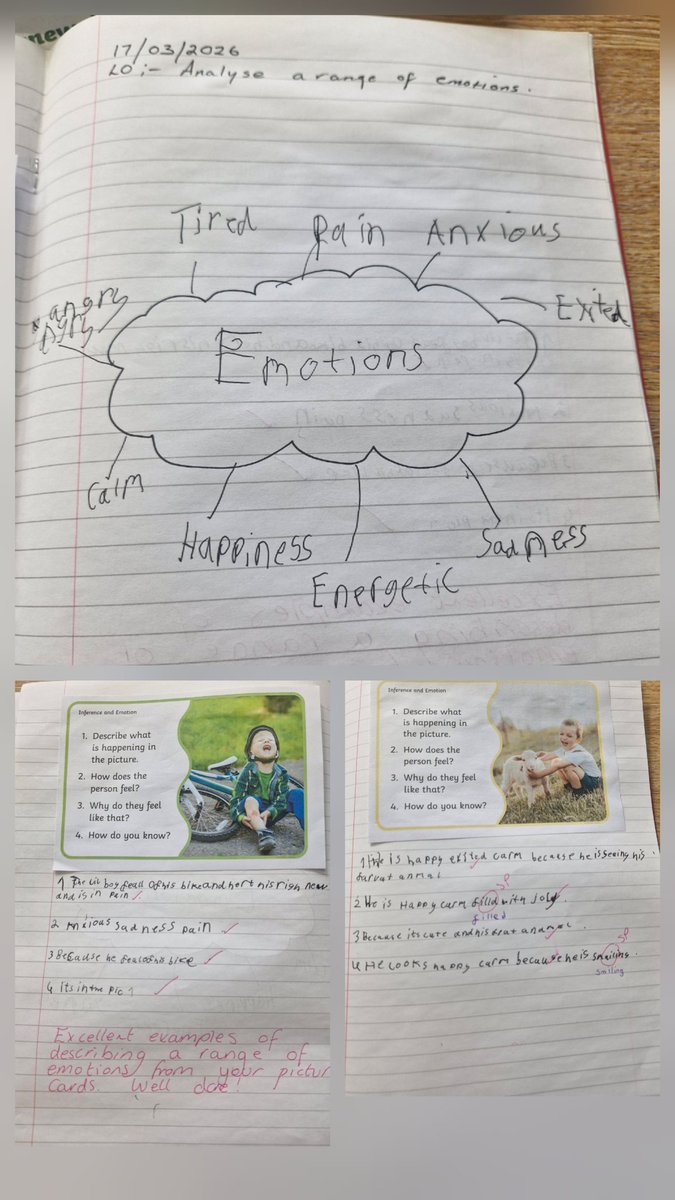 new
17/03/2026
LO :- Analyse a range of emotions.
Tired
Pain
Anxious
Exited
angry
Emotions
Calm
Happiness
Energetic
Sadness
Inference and Emotion
1. Describe what
is happening in
the picture.
2. How does the
person feel?
3. Why do they feel
like that?
4. How do you know?
1 The lit boy feall of his bike and hert his righ
and is in pain
2 Anxious Sadness pain
3 Because he feal of his bike
4 Its in the pic
Excellent examples of
describing a range of
emotions from your pictur
cards. Well done!
Inference and Emotion
1. Describe what
is happening in
the picture.
2. How does the
person feel?
3. Why do they feel
like that?
4. How do you know?
1 He is happy exited carm because he is seeing his
SP
2 He is Happy carm filld with Joly.
filled
3 Because its cute and his
SP
4 He Looks happy carm because he is
smiling